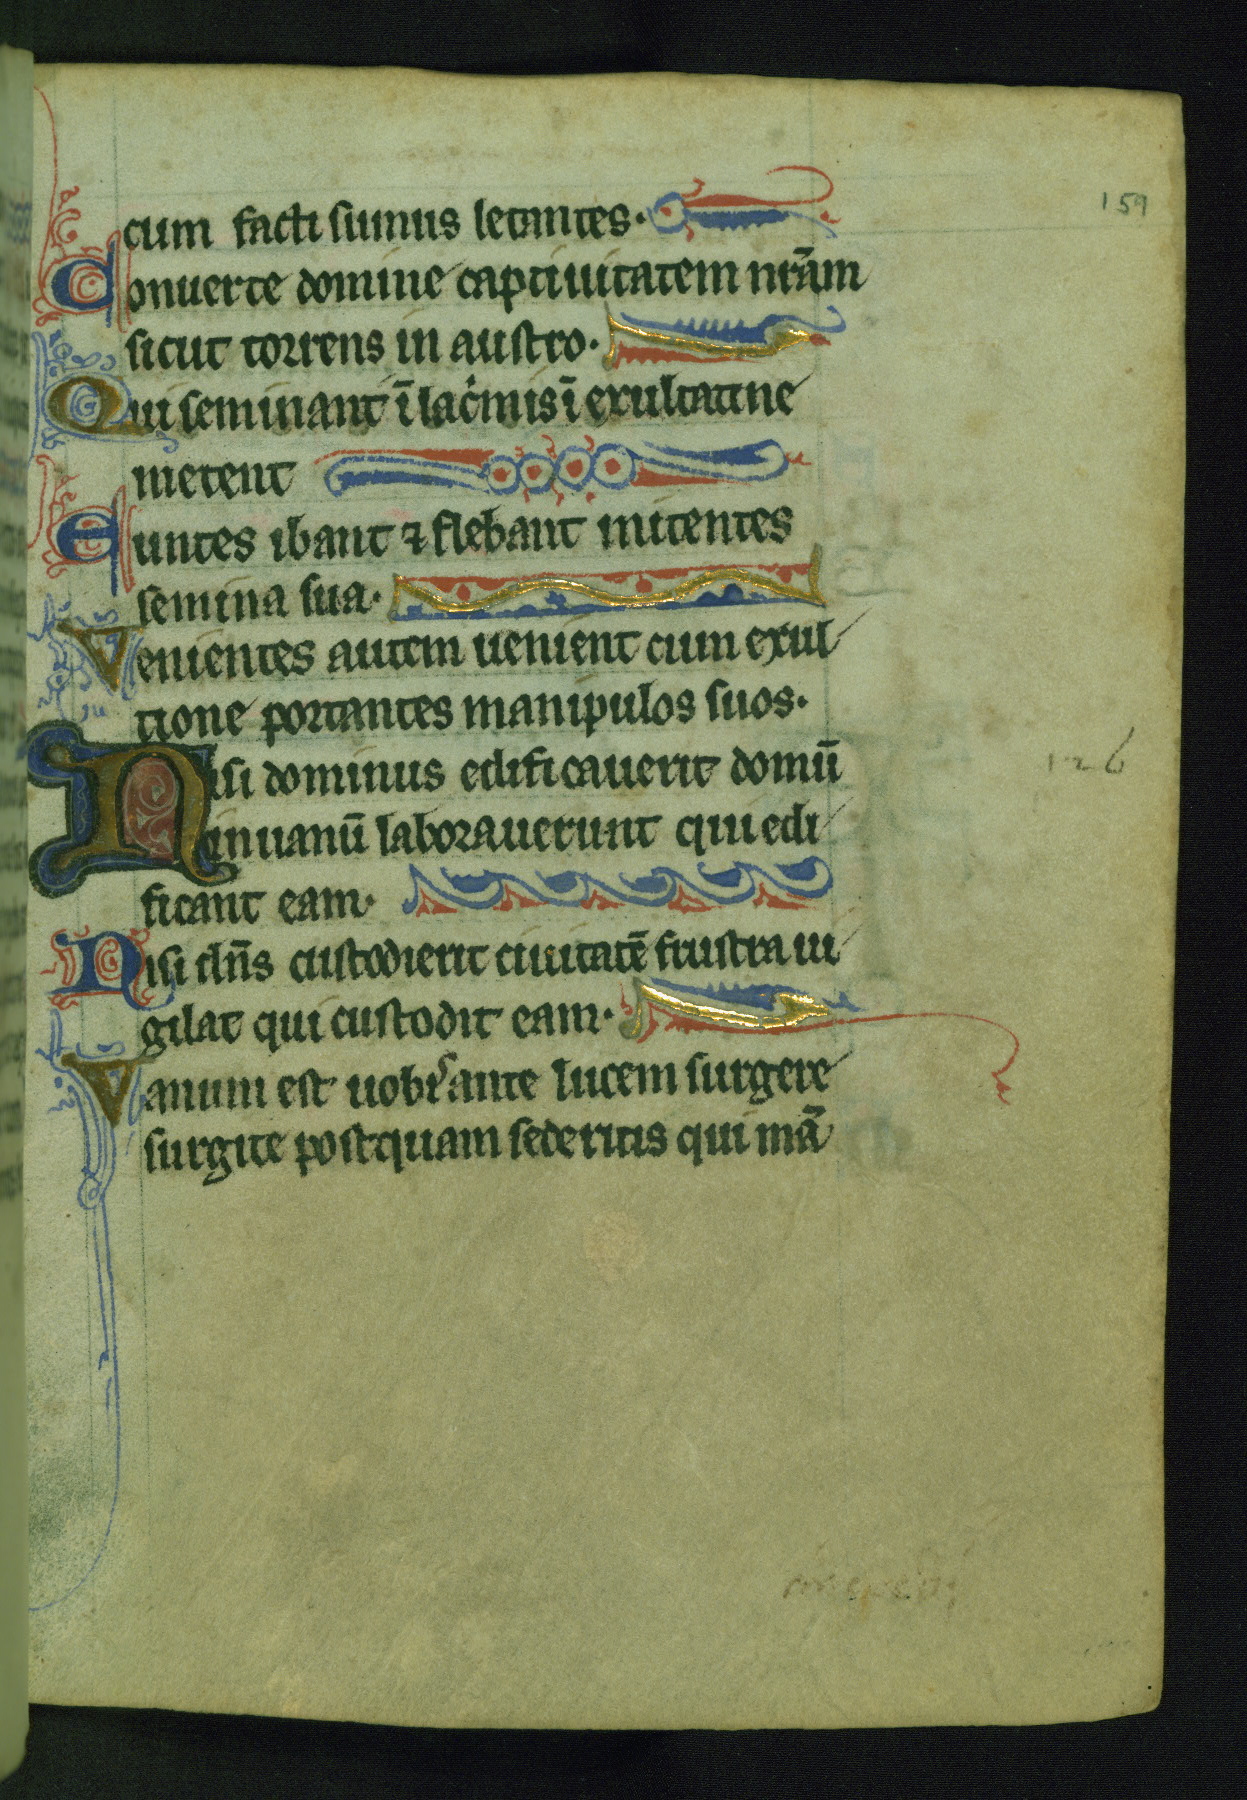 159
cum facti sumus letantes.
Conuerte domine captiuitatem nr̄am
sicut torrens in austro.
Qui seminant ī lac̓mis ī exultatine
metent
Euntes ibant ⁊ flebant mitentes
semina sua.
Venientes autem uenient cum exul
tione portantes manipulos suos.
Nisi dominus edificauerit domū
126
in uanū laborauerunt qui edi
ficant eam.
Nisi dn̄s custodierit ciuitatē frustra ui
gilat qui custodit eam.
Vanum est uobᷤ ante lucem surgere
surgite postquam sederitis qui mā